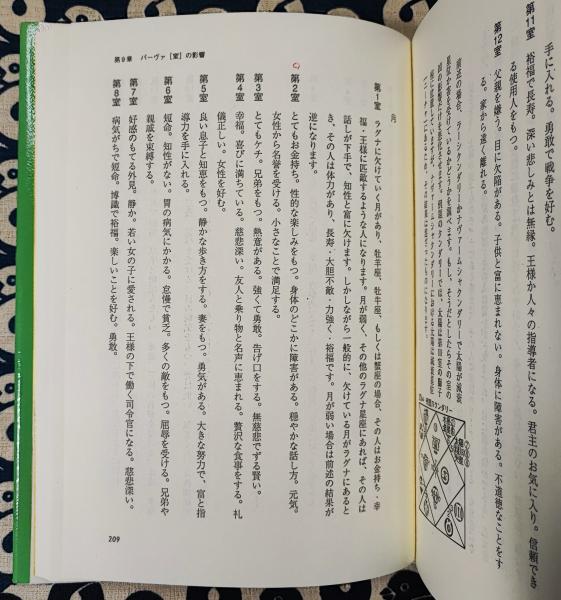 手に入れる。勇敢で戦争を好む。
第11室 裕福で長寿。深い悲しみとは無縁。王様か人々の指導者になる。君主のお気に入り。信頼でき
る使用人をもつ。
第12室 父親を嫌う。目に欠陥がある。子供と富に恵まれない。身体に障害がある。不道徳なことをす
る。家から遠く離れる。
第9章 バーヴァ［室］の影響
月
第1室 ラグナに欠けていく月があり、牡羊座、牡牛座、もしくは蟹座の場合、その人はお金持ち・幸
福・王様に匹敵するような人になります。月が弱く、その他のラグナ星座にあれば、その人は
話しが下手で、知性と富に欠けます。しかしながら一般的に、欠けている月がラグナにあると
き、その人は体力があり、長寿・大胆不敵・力強く・裕福です。月が弱い場合は前述の結果が
逆になります。
第2室 とてもお金持ち。性的な楽しみをもつ。身体のどこかに障害がある。穏やかな話し方。元気。
女性から名誉を受ける。小さなことで満足する。
第3室 とてもケチ。兄弟をもつ。熱意がある。強くて勇敢。告げ口をする。無慈悲でずる賢い。
第4室 幸福。喜びに満ちている。慈悲深い。友人と乗り物と名声に恵まれる。贅沢な食事をする。礼
儀正しい。女性を好む。
第5室 良い息子と知恵をもつ。静かな歩き方をする。妻をもつ。勇気がある。大きな努力で、富と指
導力を手に入れる。
第6室 短命。知性がない。胃の病気にかかる。怠慢で貧乏。多くの敵をもつ。屈辱を受ける。兄弟や
親戚を束縛する。
第7室 好感のもてる外見。静か。若い女の子に愛される。王様の下で働く司令官になる。慈悲深い。
第8室 病気がちで短命。博識で裕福。楽しいことを好む。勇敢。
209